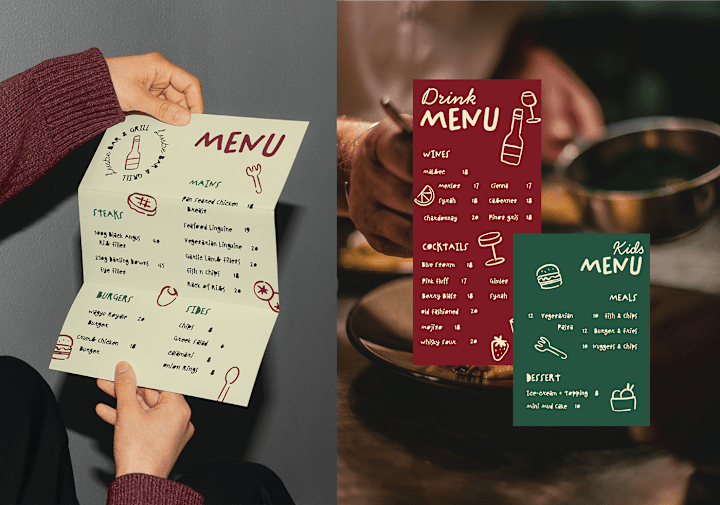 Lucie BAR & GRILL
Lucie BAR & GRILL
MENU
MAINS
Pan Seared Chicken 18
Breast
Seafood Linguine 19
Vegetarian Linguine 20
Garlic Lamb fillets 20
fish n chips 18
Rack of Ribs 20
STEAKS
300g Black Angus 40
Rib fillet
250g Darling Downs 45
Eye fillet
BURGERS
Wagyu Royale 20
Burger
Crumb Chicken 18
Burger
SIDES
Chips 8
Greek Salad 6
Calamari 8
Onion Rings 8
Drink
MENU
WINES
Malbec 18
Merlot 17 Sienna 17
Syrah 18 Cabernet 18
Chardonnay 20 Pinot gris 18
COCKTAILS
Blue Storm 18
Pink fluff 17 Gimlet
Berry Blast 18 Syrah
Old fashioned 20
Mojito 18
Whisky Sour 20
Kids
MENU
MEALS
12 Vegetarian 10 fish & Chips
Pasta 12 Burger & fries
10 Nuggets & Chips
DESSERT
Ice-cream + Topping 8
Mini Mud Cake 10